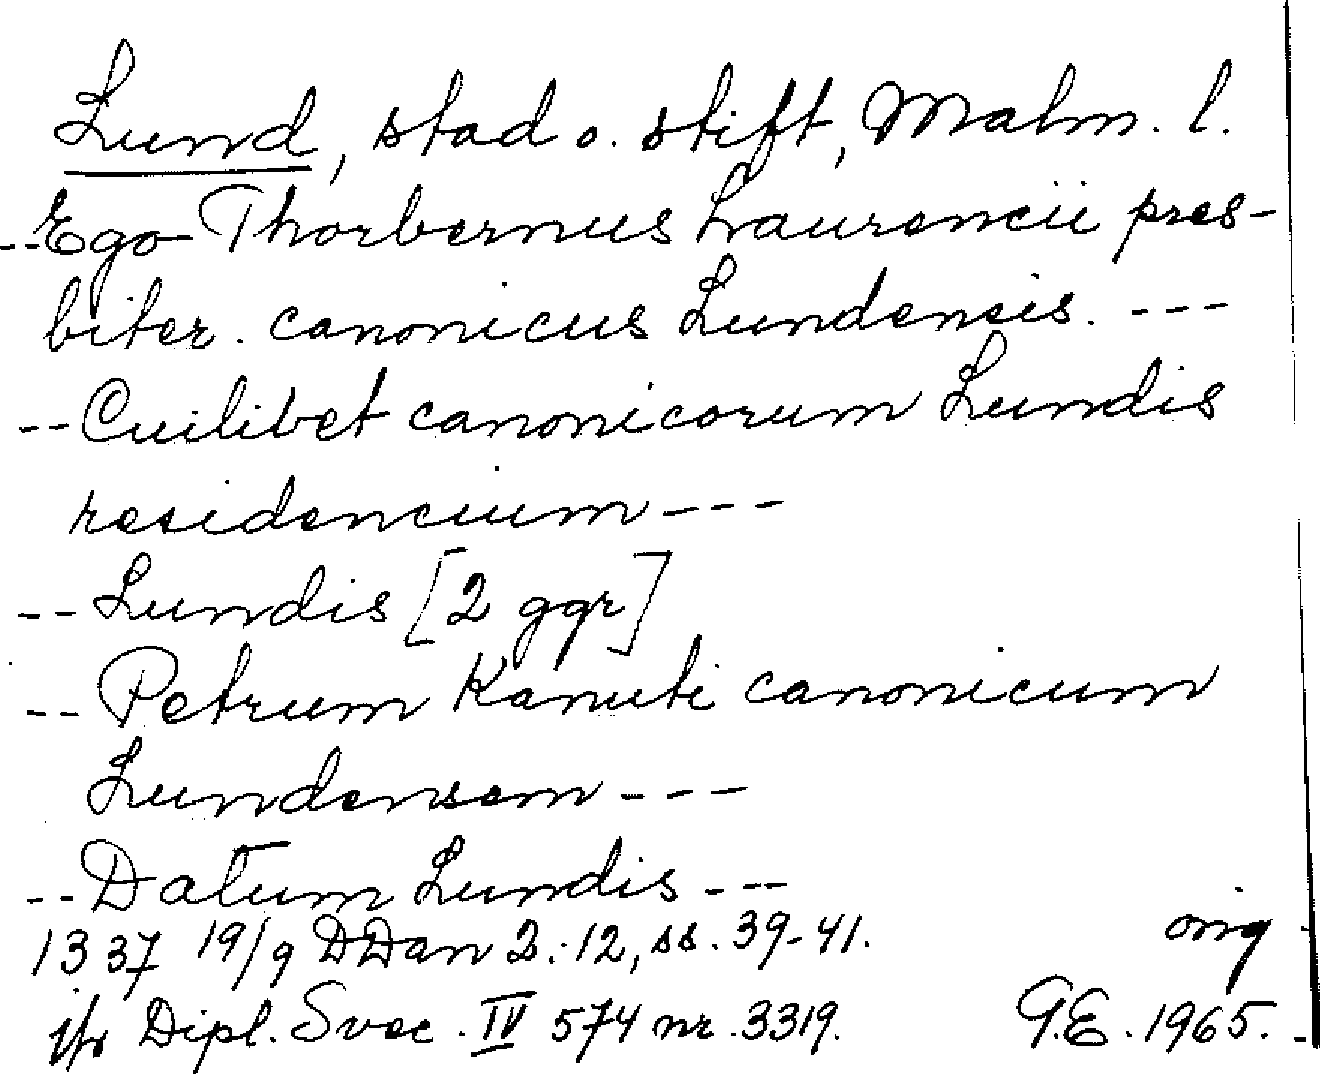 Lund, stad o. stift, Malm. l.
--Ego Thorbernus Laurencii pres-
biter. canonicus Lundensis. ---
--Cuilibet canonicorum Lundis
residencium---
--Lundis [2 ggr]
--Petrum Kanuti canonicum
Lundensem---
--Datum Lundis---
1337 19/9 DDan 2:12, ss. 39-41. orig
jfr Dipl. Svec. IV 574 nr. 3319. G.E. 1965.